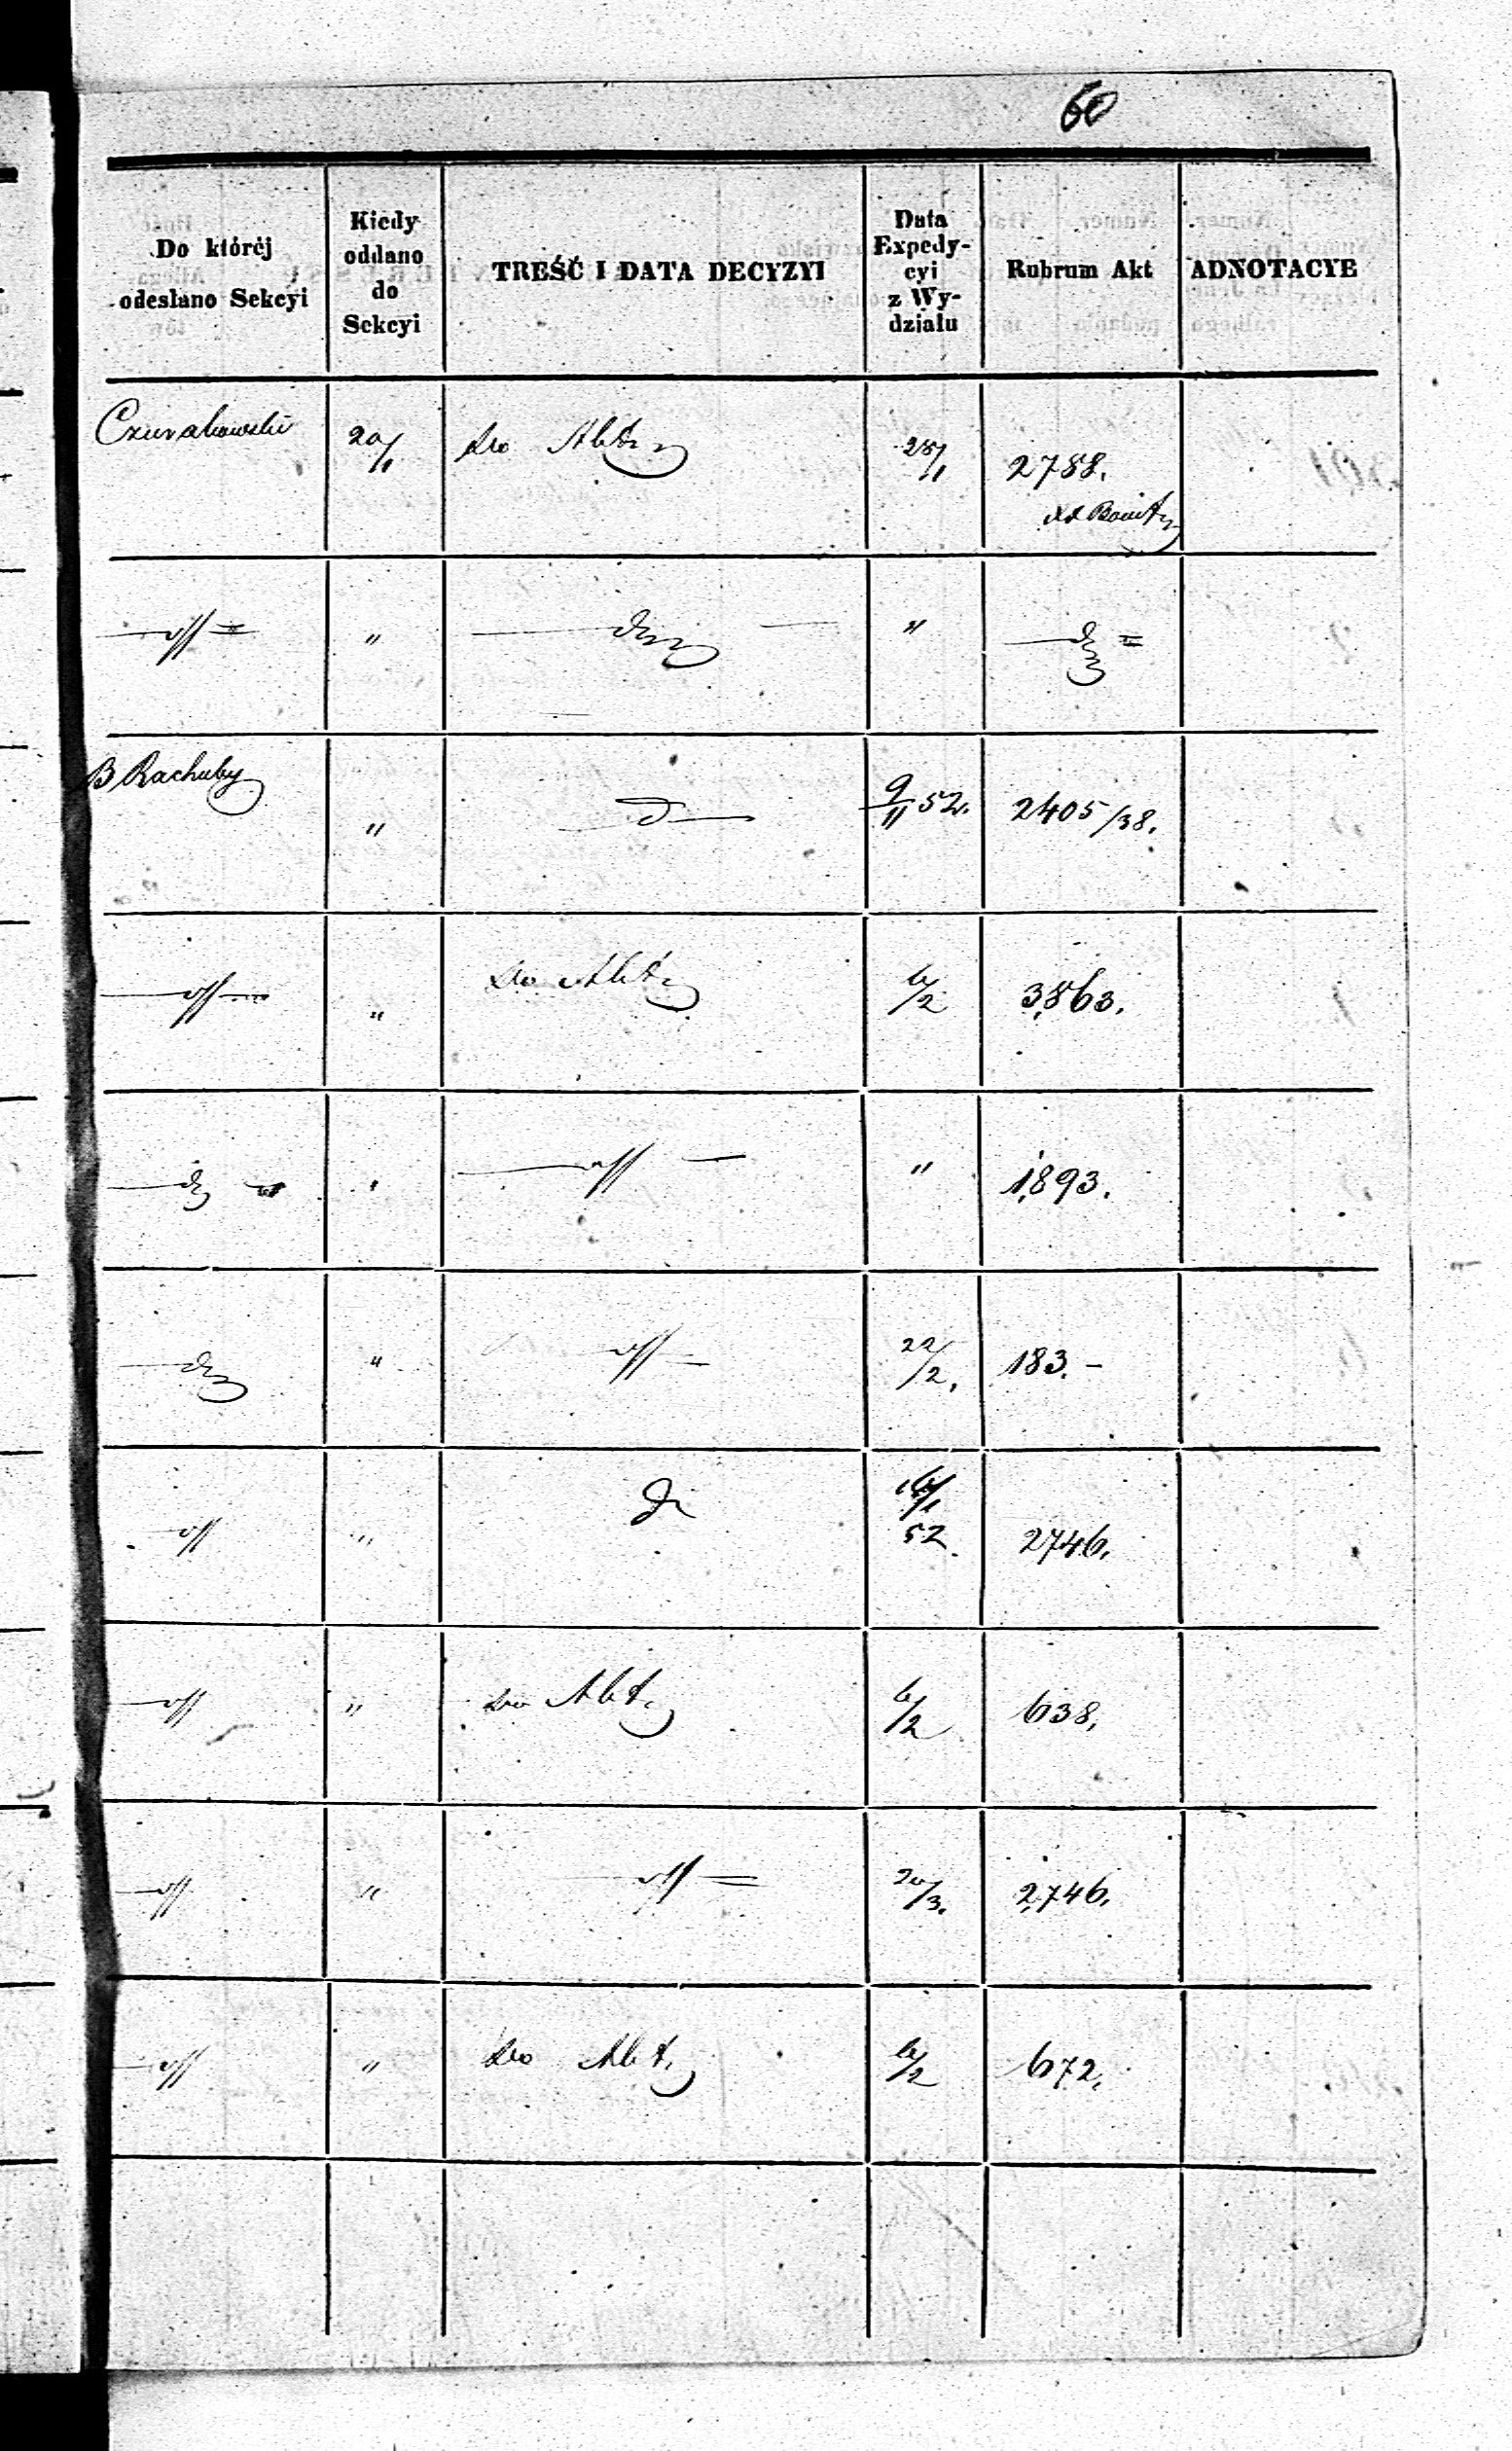 60
Do któréj
odesłano Sekcyi
Kiedy
oddano
do
Sekcyi
TREŚĆ I DATA DECYZYI
Data
Expedy-
cyi
z Wy-
działu
Rubrum Akt
ADNOTACYE
20/1 do Akt 28/1 2788.
" "
B Rachuby " 9/11 52. 2405/38.
" do Akt 6/2 3,863.
" " 1,893.
" 22/2. 183. -
" 16/1
52. 2746.
" do Akt. 6/2 638.
" 20/3. 2,746.
" do Akt. 6/2 672.